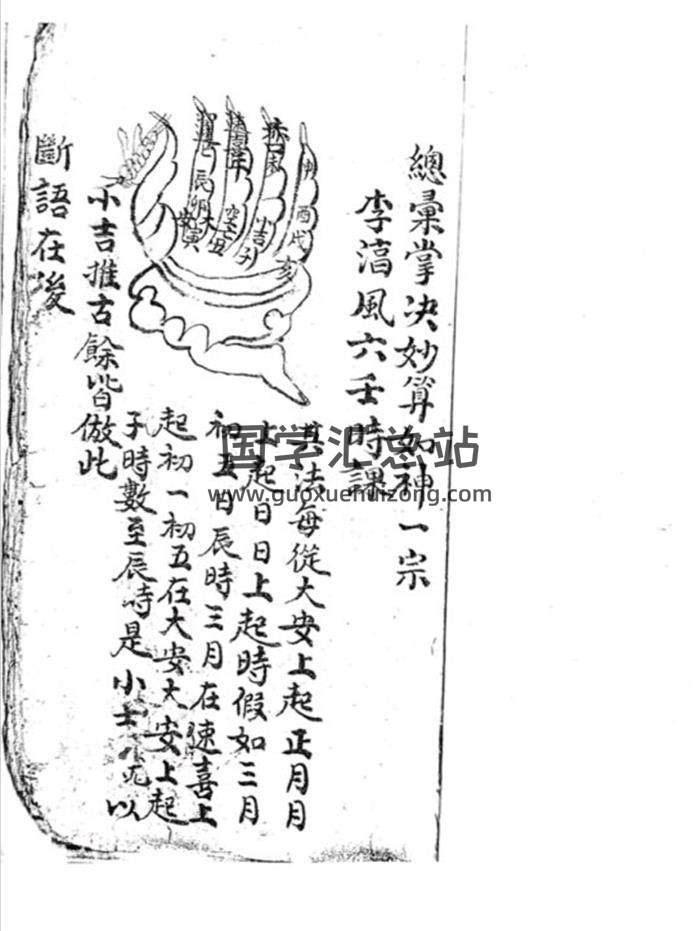 總彙掌決妙算如神一宗
李淳風六壬時課
其法每從大安上起正月月
上起日日上起時假如三月
初五日辰時三月在速喜上
起初一初五在大安大安上起
子時數至辰時是小吉 以
小吉推古餘皆倣此
斷語在後
申
酉
戌
亥
小吉
子
空亡
丑
辰
卯
大安
寅
国学汇总站
www.guoxuehuizong.com